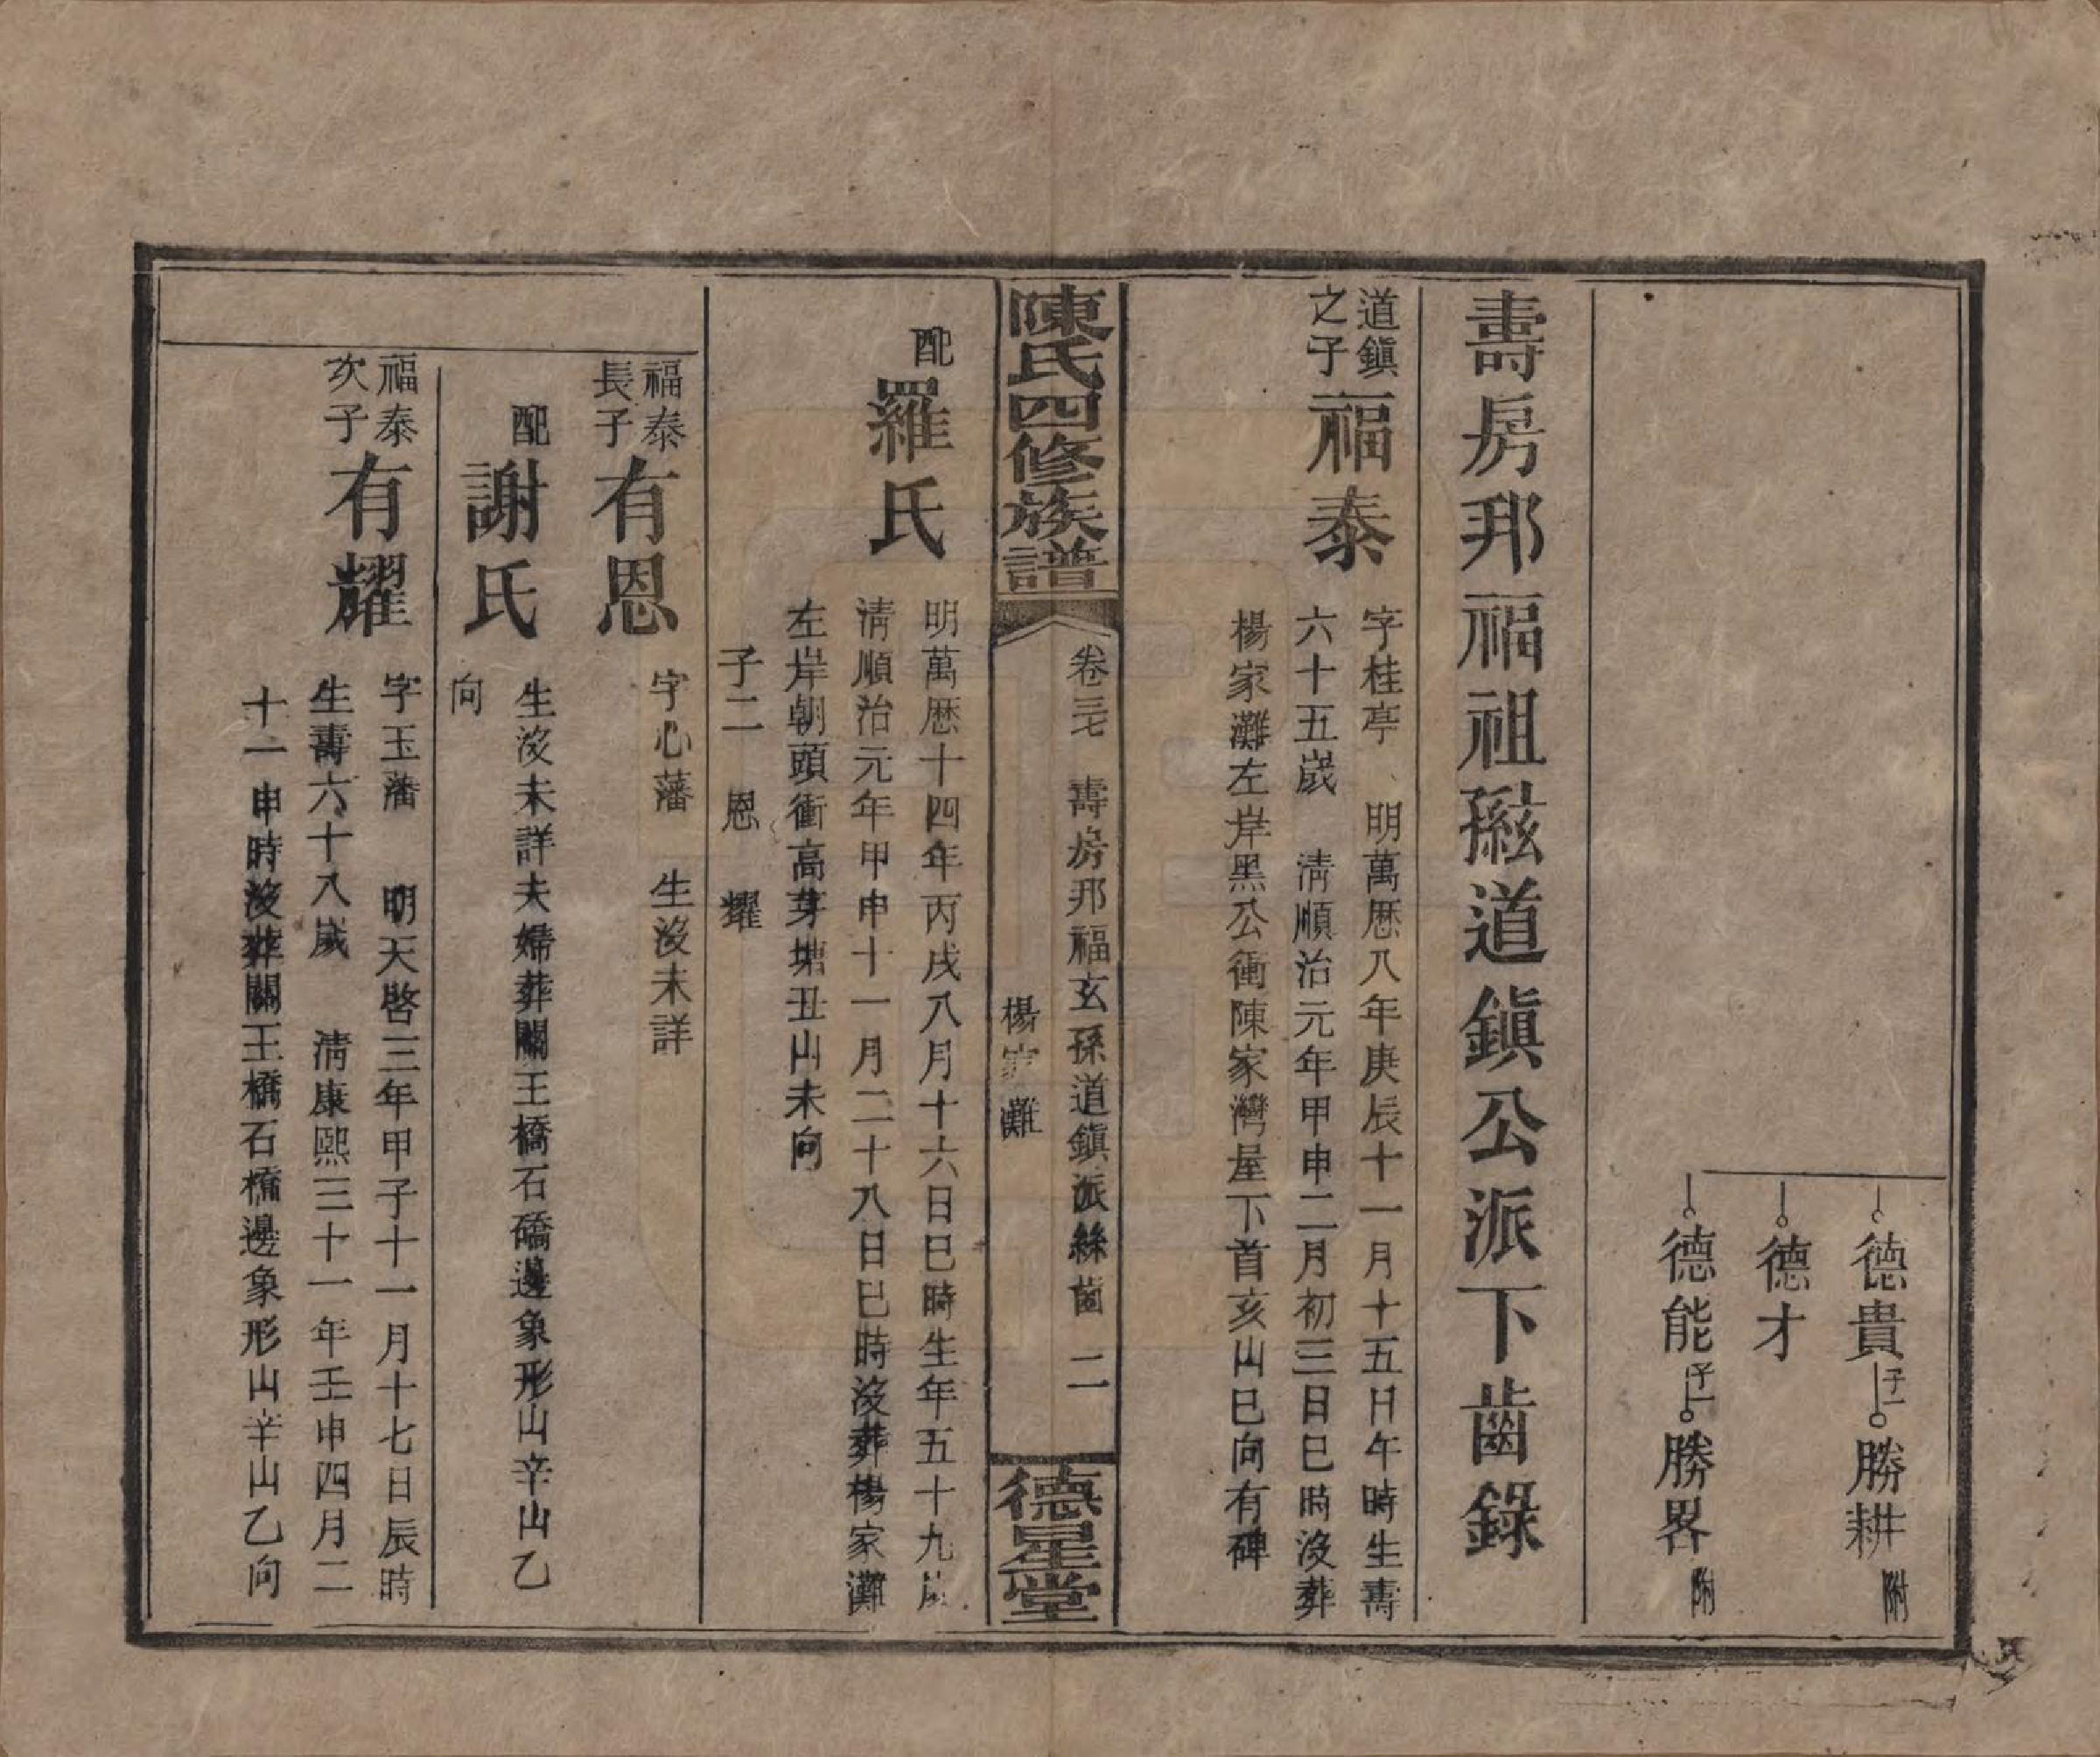 德貴 子一 勝耕 附
德才
德能 子一 勝畧 附
壽房邦福祖孫玄道鎭公派下齒錄
道鎭
之子
福泰
字桂亭 明萬厯八年庚辰十一月十五日午時生壽
六十五歲 淸順治元年甲申二月初三日巳時沒葬
楊家灘左岸黑公衝陳家灣屋下首亥山巳向有碑
陳氏四修族譜
卷三七 壽房邦福玄孫道鎭派絲齒 二
楊家灘
德星堂
配
羅氏
明萬厯十四年丙戌八月十六日巳時生年五十九歲
淸順治元年甲申十一月二十八日巳時沒葬楊家灘
左岸朝頭衝高芽塘丑山未向
子二 恩 耀
福泰
長子
有恩
字心藩 生沒未詳
配
謝氏
生沒未詳夫婦葬關王橋石礄邊象形山辛山乙
向
福泰
次子
有耀
字玉藩 明天啓三年甲子十一月十七日辰時
生壽六十八歲 淸康熙三十一年壬申四月二
十一申時沒葬關王橋石橋邊象形山辛山乙向